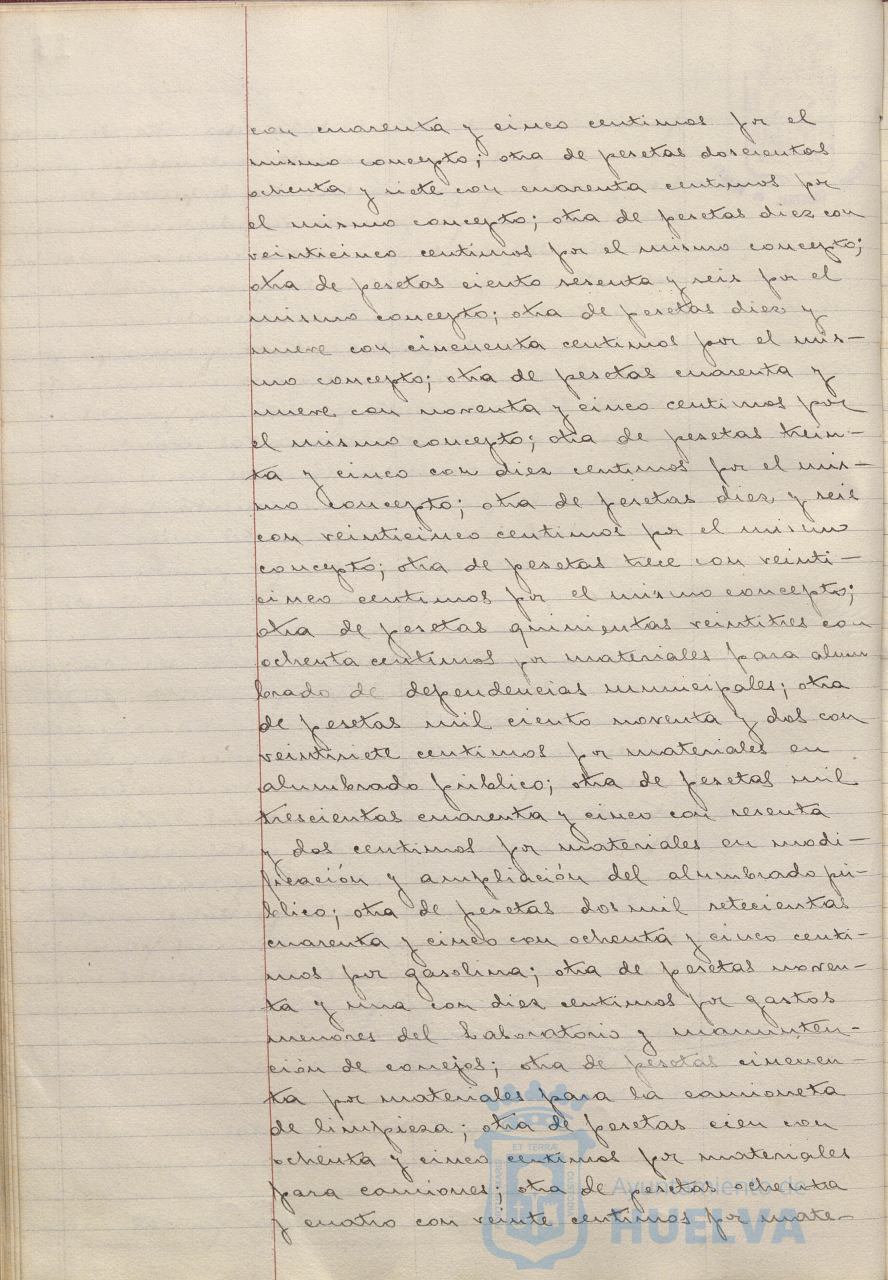 con cuarenta y cinco centimos por el
mismo concepto; otra de pesetas doscientas
ochenta y siete con cuarenta centimos por
el mismo concepto; otra de pesetas diez con
veinticinco centimos por el mismo concepto;
otra de pesetas ciento sesenta y seis por el
mismo concepto; otra de pesetas diez y
nueve con cincuenta centimos por el mis-
mo concepto; otra de pesetas cuarenta y
nueve con noventa y cinco centimos por
el mismo concepto; otra de pesetas trein-
ta y cinco con diez centimos por el mis-
mo concepto; otra de pesetas diez y seis
con veinticinco centimos por el mismo
concepto; otra de pesetas trece con veinti-
cinco centimos por el mismo concepto;
otra de pesetas quinientas veintitres con
ochenta centimos por materiales para alum
brado de dependencias municipales; otra
de pesetas mil ciento noventa y dos con
veintisiete centimos por materiales en
alumbrado público; otra de pesetas mil
trescientas cuarenta y cinco con sesenta
y dos centimos por materiales en modi-
ficación y ampliación del alumbrado pú-
blico; otra de pesetas dos mil setecientas
cuarenta y cinco con ochenta y cinco centi-
mos por gasolina; otra de pesetas noven-
ta y una con diez centimos por gastos
menores del Laboratorio y manunten-
ción de conejos; otra de pesetas cincuen-
ta por materiales para la camioneta
de limpieza; otra de pesetas cien con
ochenta y cinco centimos por materiales
para camiones; otra de pesetas ochenta
y cuatro con veinte centimos por mate-
ET TERRÆ
Ayuntamiento de
HUELVA